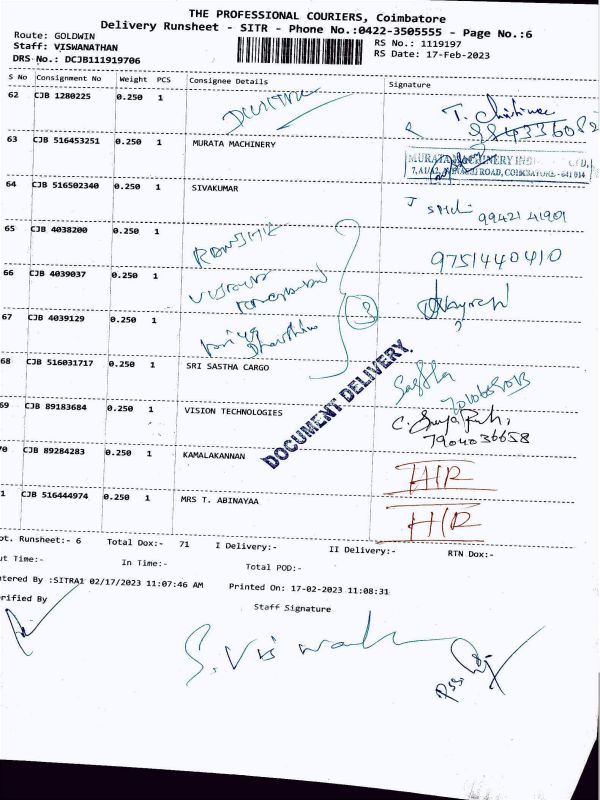 THE PROFESSIONAL COURIERS, Coimbatore
Delivery Runsheet - SITR - Phone No.:0422-3505555 - Page No.:6
Route: GOLDWIN
Staff: VISWANATHAN
DRS No.: DCJB111919706
RS No.: 1119197
RS Date: 17-Feb-2023
S No Consignment No Weight PCS Consignee Details Signature
62 CJB 1280225 0.250 1
63 CJB 516453251 0.250 1 MURATA MACHINERY
MURATA MACHINERY
ROAD, COIMBATORE - 641 014
64 CJB 516502340 0.250 1 SIVAKUMAR 99421 41901
65 CJB 4038200 0.250 1 9751440410
66 CJB 4039037 0.250 1
67 CJB 4039129 0.250 1
68 CJB 516031717 0.250 1 SRI SASTHA CARGO Sastha
69 CJB 89183684 0.250 1 VISION TECHNOLOGIES
7904036658
DOCUMENT DELIVERY.
70 CJB 89284283 0.250 1 KAMALAKANNAN H/R
1 CJB 516444974 0.250 1 MRS T. ABINAYAA H/R
ot. Runsheet:- 6 Total Dox:- 71 I Delivery:- II Delivery:- RTN Dox:-
ut Time:- In Time:- Total POD:-
ntered By :SITRA1 02/17/2023 11:07:46 AM Printed On: 17-02-2023 11:08:31
rified By Staff Signature